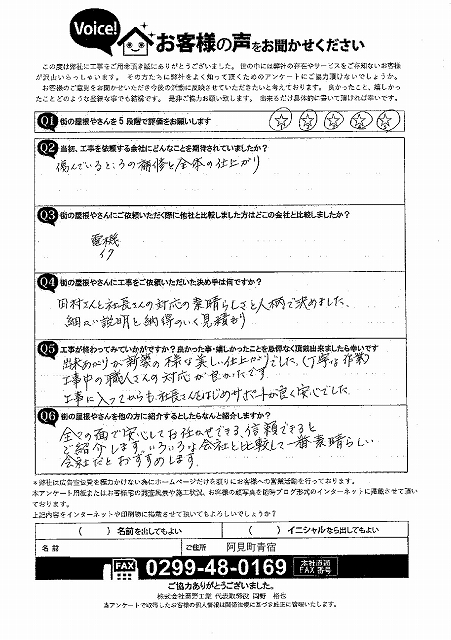 Voice!
お客様の声をお聞かせください
この度は弊社に工事をご用命頂き誠にありがとうございました。世の中には弊社の存在やサービスをご存知ないお客様
が沢山いらっしゃいます。その方たちに弊社をよく知って頂くためのアンケートにご協力頂けないでしょうか。
お客様のご意見をお聞かせいただき今後の活動に反映させていただきたいと考えております。良かったこと、嬉しかっ
たことどのような些細な事でも結構です。是非ご協力お願い致します。出来るだけ具体的に書いて頂ければ幸いです。
Q1 街の屋根やさんを5段階で評価をお願いします
Q2 当初、工事を依頼する会社にどんなことを期待されていましたか?
傷んでいるところの補修と全体の仕上がり
Q3 街の屋根やさんにご依頼いただく際に他社と比較しました方はどこの会社と比較しましたか?
電機
Q4 街の屋根やさんに工事をご依頼いただいた決め手は何ですか?
田村さんと社長さんの対応の素晴らしさと人柄で決めました、
細かい説明と納得のいく見積もり
Q5 工事が終わってみていかがですか?良かった事・嬉しかったことを忌憚なく頂戴出来ましたら幸いです
出来あがりが新築の様な美しい仕上がりでした。(丁寧な作業)
工事中の職人さんの対応が良かったです
工事に入ってからも社長さんをはじめサポートが良く安心でした
Q6 街の屋根やさんを他の方に紹介するとしたらなんと紹介しますか?
全ての面で安心してお任せできる、信頼できると
ご紹介します。いろいろな会社と比較して一番素晴らしい
会社だとおすすめします。
*弊社は広告宣伝費を極力かけない為にホームページだけを頼りにお客様への営業活動を行っております。
本アンケート用紙またはお客様宅の調査風景や施工状況、お客様の顔写真を即時ブログ形式のインターネットに掲載させて頂いております。
上記内容をインターネットや印刷物に掲載させて頂いてもよろしいでしょうか?
( )名前を出してもよい ( )イニシャルなら出してもよい
名前 ご住所 阿見町青宿
FAX 0299-48-0169 本社直通 FAX番号
ご協力ありがとうございました。
代表取締役
当アンケートで取得したお客様の個人情報は関係法規に基づき厳正に管理いたします。